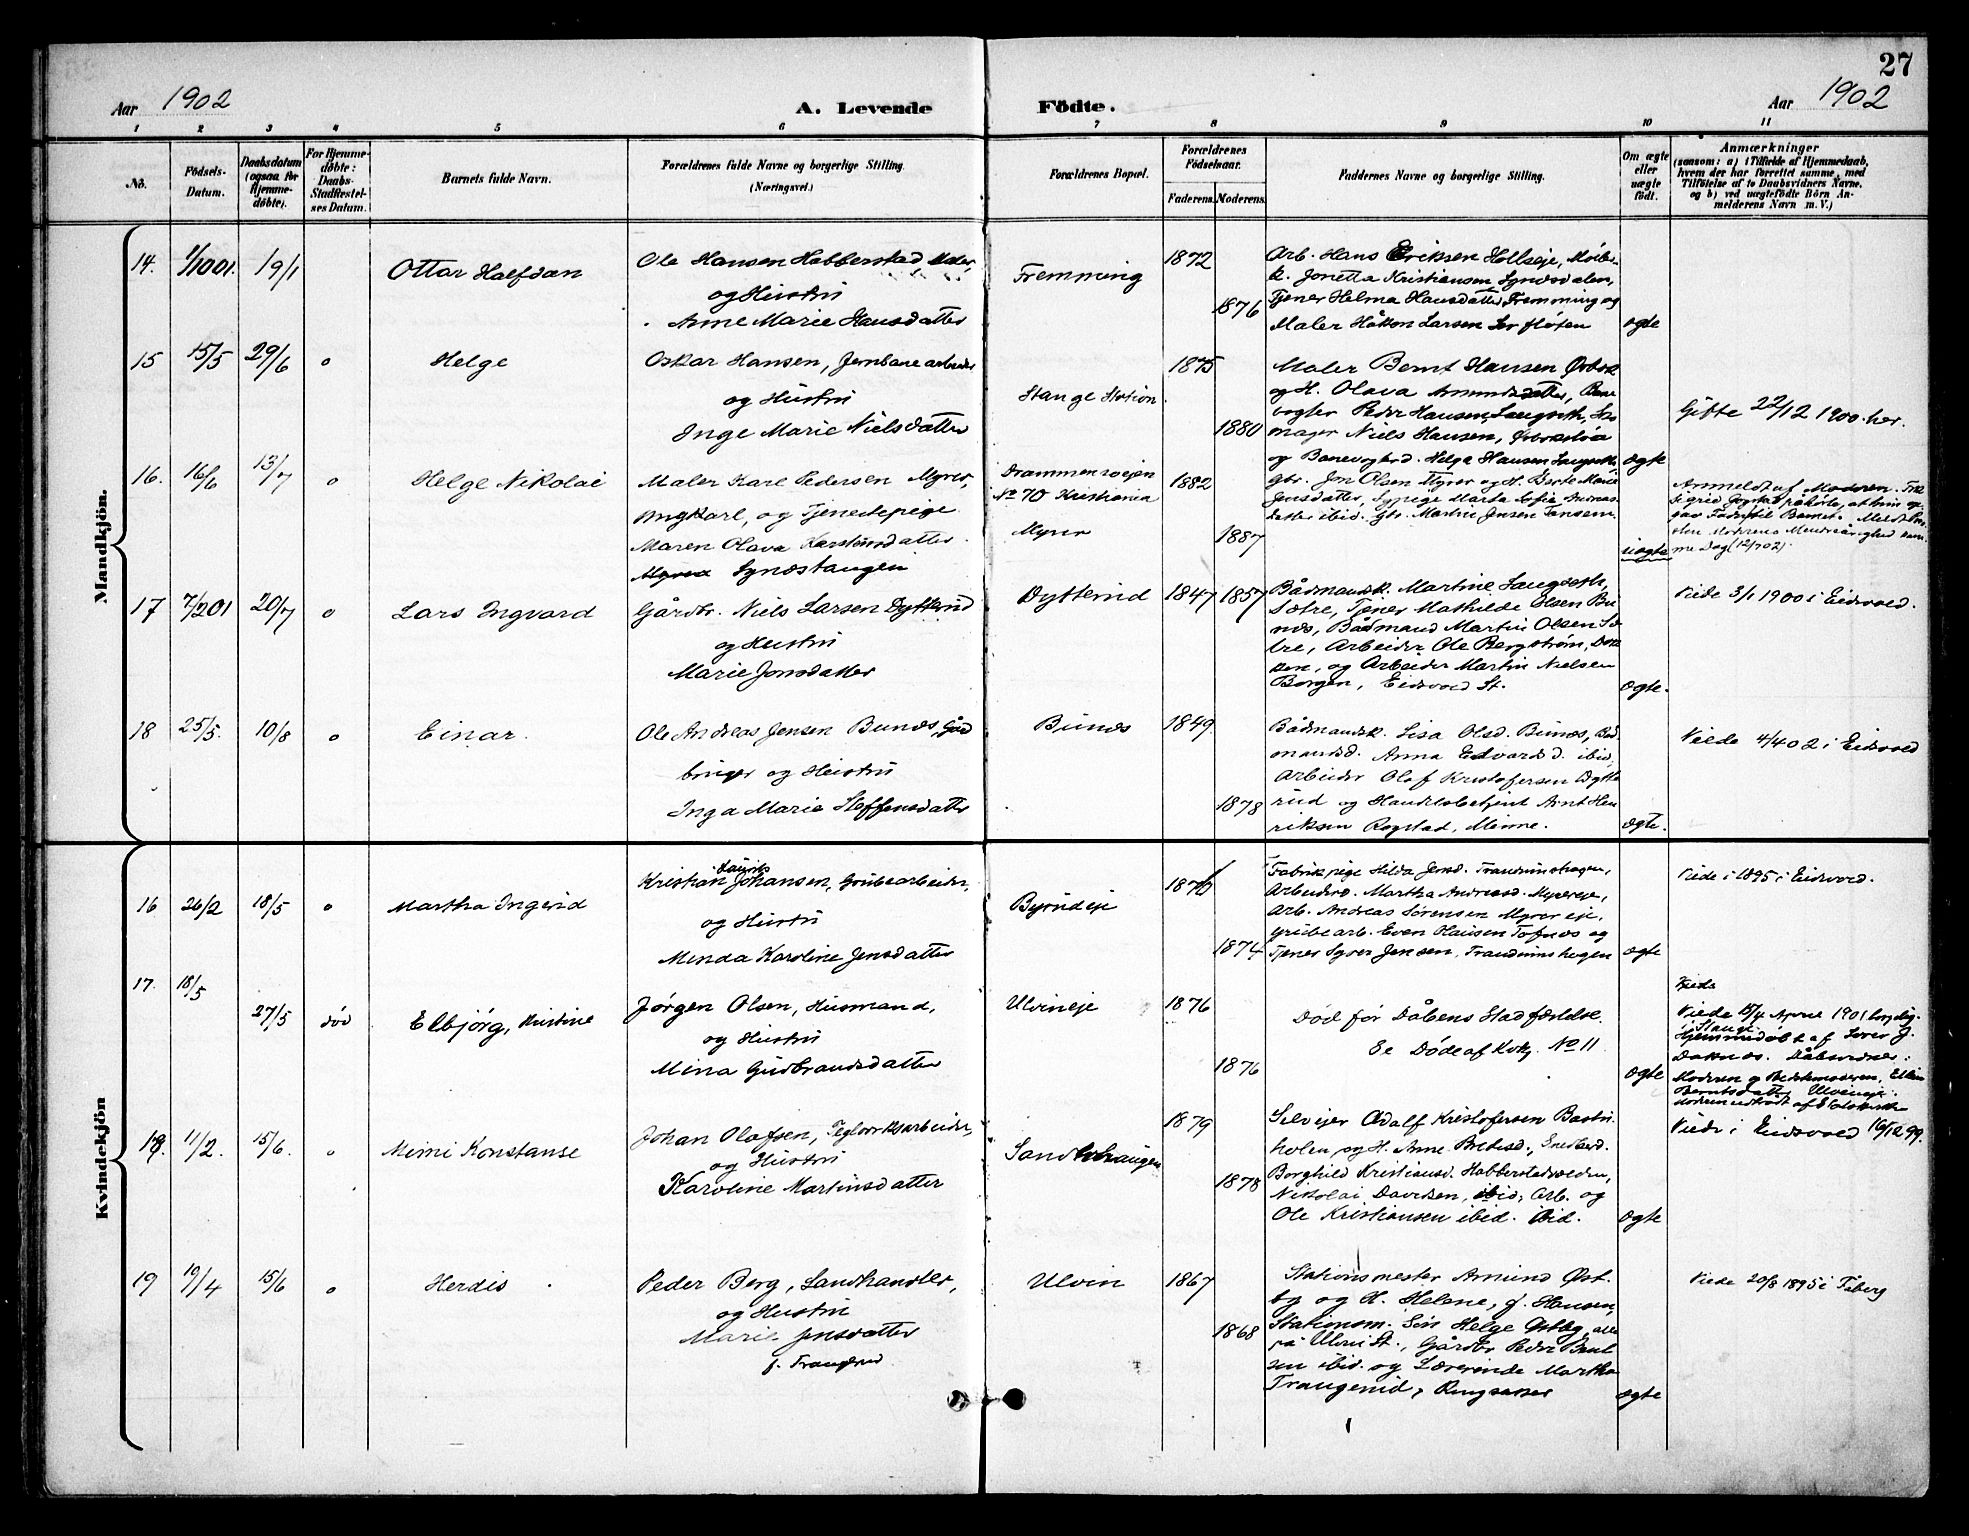 27
Aar 1902
A. Levende Födte.
Aar 1902
1 2 3 4 5 6 7 8 9 10 11
No.
Födsels-Datum.
Daabsdatum (ogsaa for Hjemmedøbte).
For Hjemmedøbte: Daabs-Stadfæstelses Datum.
Barnets fulde Navn.
Forældrenes fulde Navne og borgerlige Stilling.
(Næringsvei.)
Forældrenes Bopæl.
Forældrenes Fødselsaar.
Faderens. Moderens.
Faddernes Navne og borgerlige Stilling.
Om ægte eller uægte födt.
Anmærkninger
(saasom: a) i Tilfælde af Hjemmedaab, hvem der har forrettet samme, med Tilføielse af to Daabsvidners Navne, og b) ved uægtefödte Börn Anmelderens Navn m. V.)
Mandkjön.
14. 1/10 01. 19/1
Ottar Halfdan
Ole Hansen Habberstad Maler,
og Hustru
Anne Marie Hansdatter
Fremming
1872
1876
Arb. Hans Eriksen Hollseje,
k. Jonetta Kristiansen Syndsdalen,
Tjener Helma Hansdatter Fremming og
Maler Håkon Larsen
ægte
15 15/5 29/6 o
Helge
Oskar Hansen, Jernbanearbeider
og Hustru
Inge Marie Nielsdatter
Stange Station.
1875
1880
Maler Bernt Hansen
og H. Olava Amundsdatter, Bane
vogter Peder Hansen, Langseth,
mager Niels Hansen,
og Banevogterd. Helga Hansen Langseth
ægte
Gifte 22/12 1900 her.
16. 16/6 13/7 o
Helge Nikolai
Maler Karl Pedersen Myrer,
Ungkarl, og Tjenestepige
Maren Olava Karstensdatter
Synæstangen
Drammensvejen
No 70 Kristiania
Myrer
1882
1887
gbr. Jon Olsen Myrer og H. Berte Marie
Jensdatter, Sypige Marta Sofie
datter ibid. gbr. Martin Jensen
uægte
Anmeldt af Moderen.
17 7/2 01 20/7 o
Lars Ingvard
Gårdbr. Niels Larsen Dytterud
og Hustru
Marie Jonsdatter
Dytterud
1847 1857
Bådmandsk. Martine Langseth,
Sætre, Tjener Mathilde Olsen Bu
næs, Bådmand Martin Olsen Sæ
tre, Arbeider Ole Bergstrøm,
og Arbeider Martin Nielsen
Borgen, Eidsvold St.
ægte.
Viede 3/1 1900 i Eidsvold.
18 25/5. 10/8 o
Einar.
Ole Andreas Jensen Bunæs, Gård
bruger og Hustru
Inga Marie Steffensdatter
Bunæs
1849
1878
Bådmandsk. Lisa Olsd. Bunæs, Båd
mandsd. Anna Edvardsd. ibid,
Arbeider Olaf Kristofersen Dytte
rud og Handelsbetjent Arnt Hen
riksen Rogstad, Minne.
ægte.
Viede 4/4 02 i Eidsvold
Kvindekjön
16 26/2 18/5 o
Martha Ingerid
Laurits
Kristian Johansen, Grubearbeider,
og Hustru
Minda Karoline Jensdatter
Byrudeje
1876
1874
Fabrikpige Hilda Jensd. Trandumshagen,
Arbeiders. Martha Andreasd. Myrereje,
Arb. Andreas Sørensen Myrer eje,
grubearb. Even Hansen Tofnæs og
Tjener Syver Jensen, Trandumshagen
ægte
Viede i 1895 i Eidsvold.
17. 18/5 27/5 død
Elbjörg, Kristine
Jørgen Olsen, Husmand,
og Hustru
Mina Gudbrandsdatter
Ulvineje
1876
1876
Død før Dåbens Stadfæstelse.
Se Døde af Kvkj. No 11.
ægte
Viede
Viede 15/4 April 1901 borgelig.
i Stange
Hjemmedøbt af
Dåbsvidner:
Moderen og Bedstemoderen,
Berntsdatter Ulvineje.
18. 11/2. 15/6. o
Mimi Konstanse
Johan Olafsen, Teglværksarbeider,
og Hustru
Karoline Martinsdatter
Sandbohaugen
1879
1878
Selvejer Adolf Kristofersen
og H. Anne
Borghild Kristiansd. Habberstad
Nikolai Davidsen, ibid, Arb. og
Ole Kristiansen ibid. ibid.
ægte
Viede i Eidsvold 16/12 99.
19 19/4 15/6 o
Herdis
Peder Berg, Landhandler,
og Hustru
Marie Jensdatter
f. Traugerud
Ulvin
1867
1868
Stationsmester Amund Øst
by og H. Helene, f. Hansen,
Stationsm. Søn Helge Østby, alle
på Ulvin St., Gårdbr Peder Paul
sen ibid. og Lærerinde Martha
Traugerud, Ringsaker
ægte
Viede 20/8 1895 i Fåberg